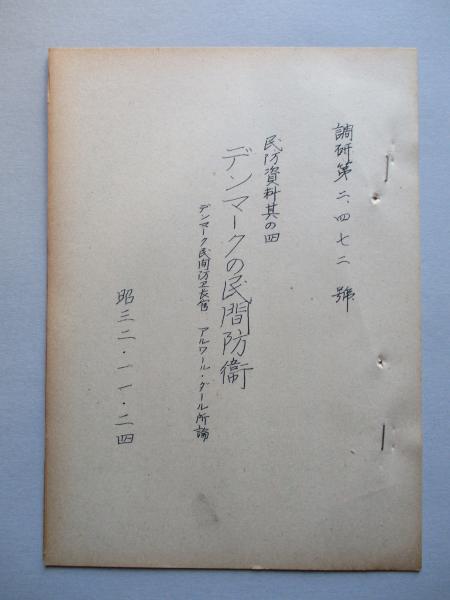 調研第二、四七二號
民防資料其の四
デンマークの民間防衞
デンマーク民間防卫長官 アルワール・ダール所論
昭三二・一一・二四